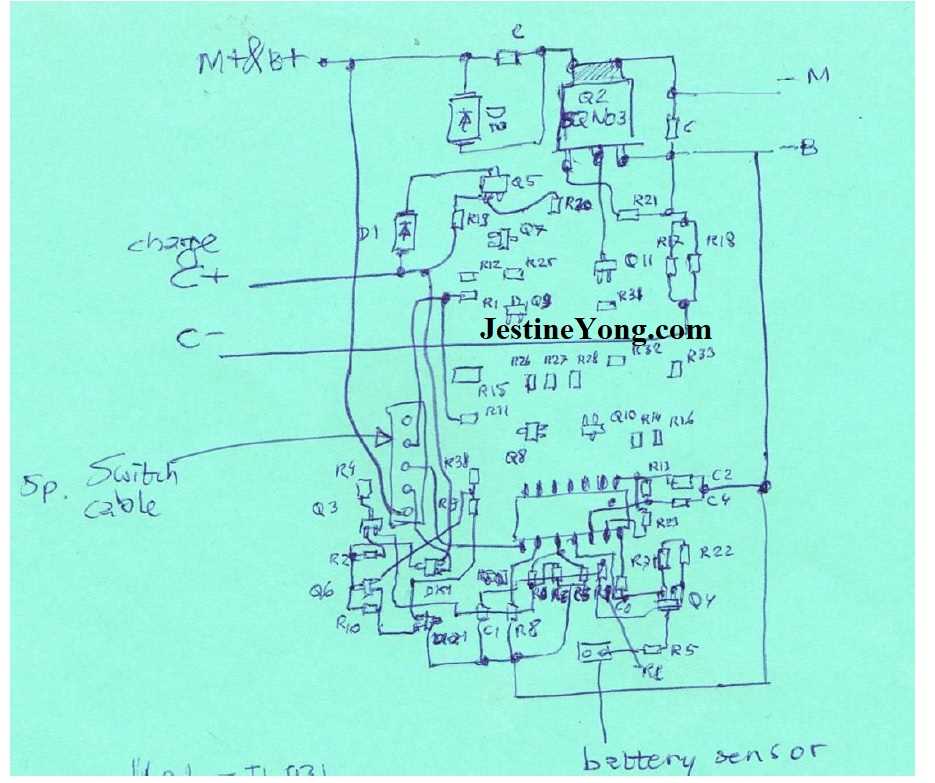 M+&B+
R
- M
Q2
D
C
- B
Q5
R21
R19
R20
D1
Q7
R17
R18
charge
C+
R12
R25
Q11
R1
Q9
C-
JestineYong.com
R26
R27
R28
R32
R33
R15
R11
Q10
R14
R16
Q8
5p. Switch
cable
R4
R38
R13
C2
C4
Q3
R2
R23
R22
Q6
Q4
R10
C1
R8
R5
battery sensor